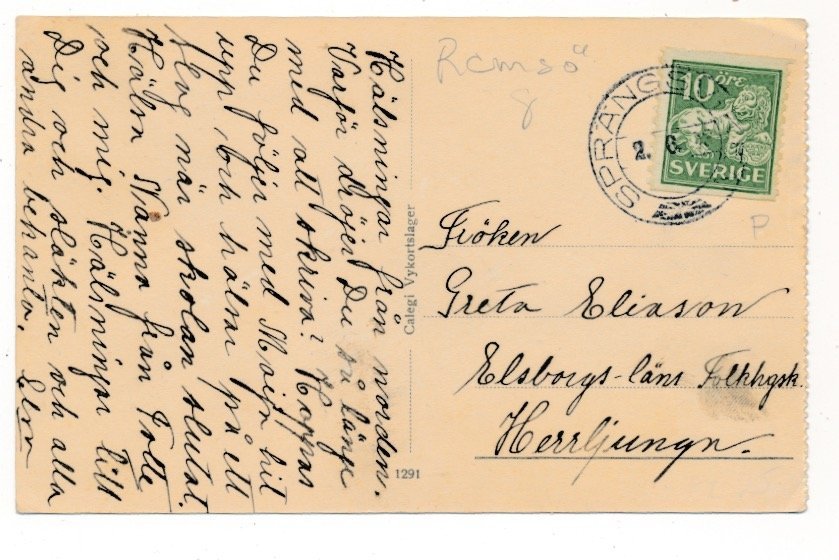 Hälsningar från norden.
Varför dröjer Du så länge
med att skriva? Hoppas
Du följer med Majn hit
upp och hälsar på ett
slag när skolan slutat.
Hälsa Nanna från Tolle
och mig. Hälsningar till
Dig och släkten och alla
andra bekanta. Elsa
Calegi Vykortslager
1291
Remsö
8
SPRÄNGS
10 ÖRE
SVERIGE
P
Fröken
Greta Eliason
Elsborgs-läns Folkhgsk.
Herrljunga.